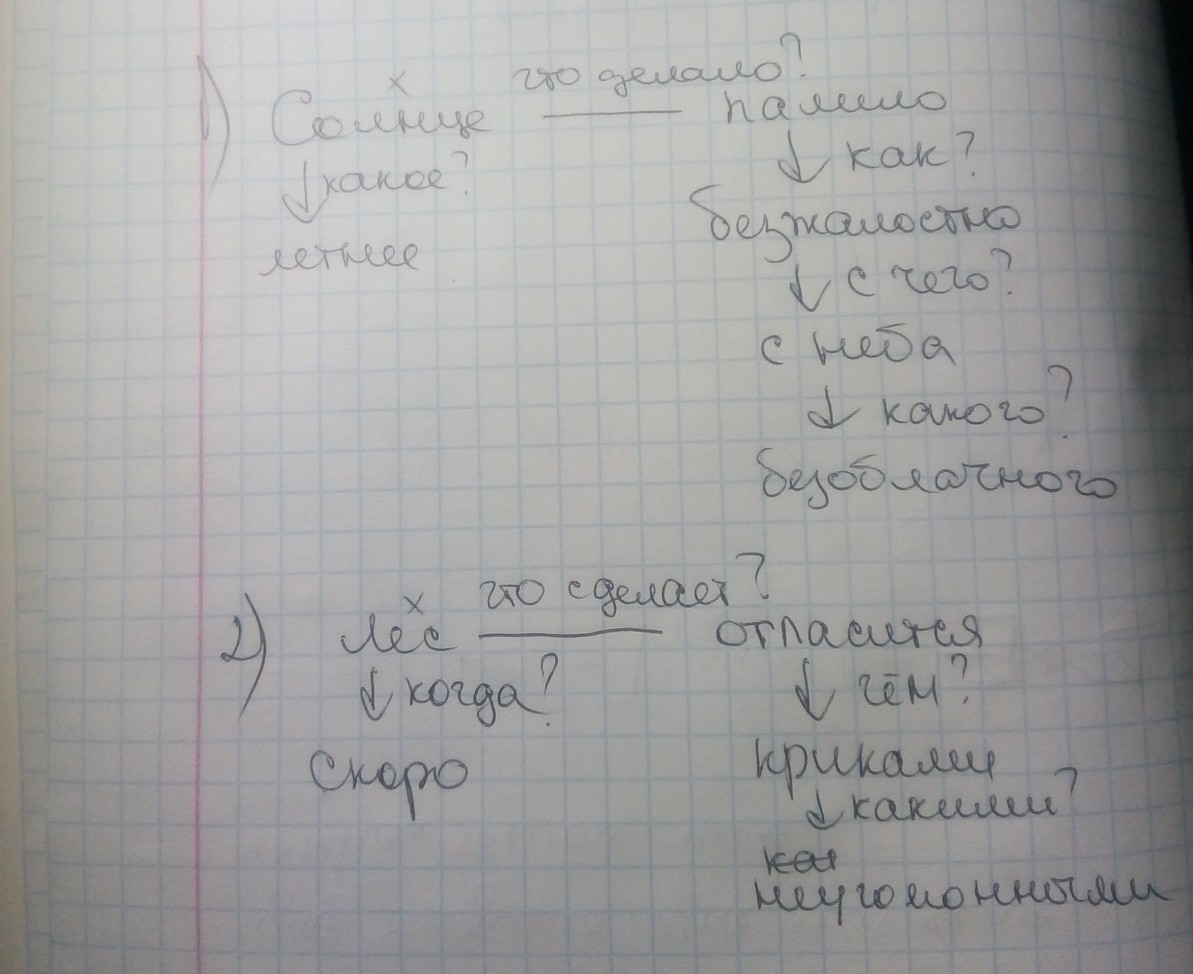 что сделало?
1) Солнце —— палило
какое? как?
летнее безжалостно
с чего?
с неба
какого?
безоблачного
что сделает?
2) Лес —— огласится
когда? чем?
Скоро криками
какими?
неугомонными